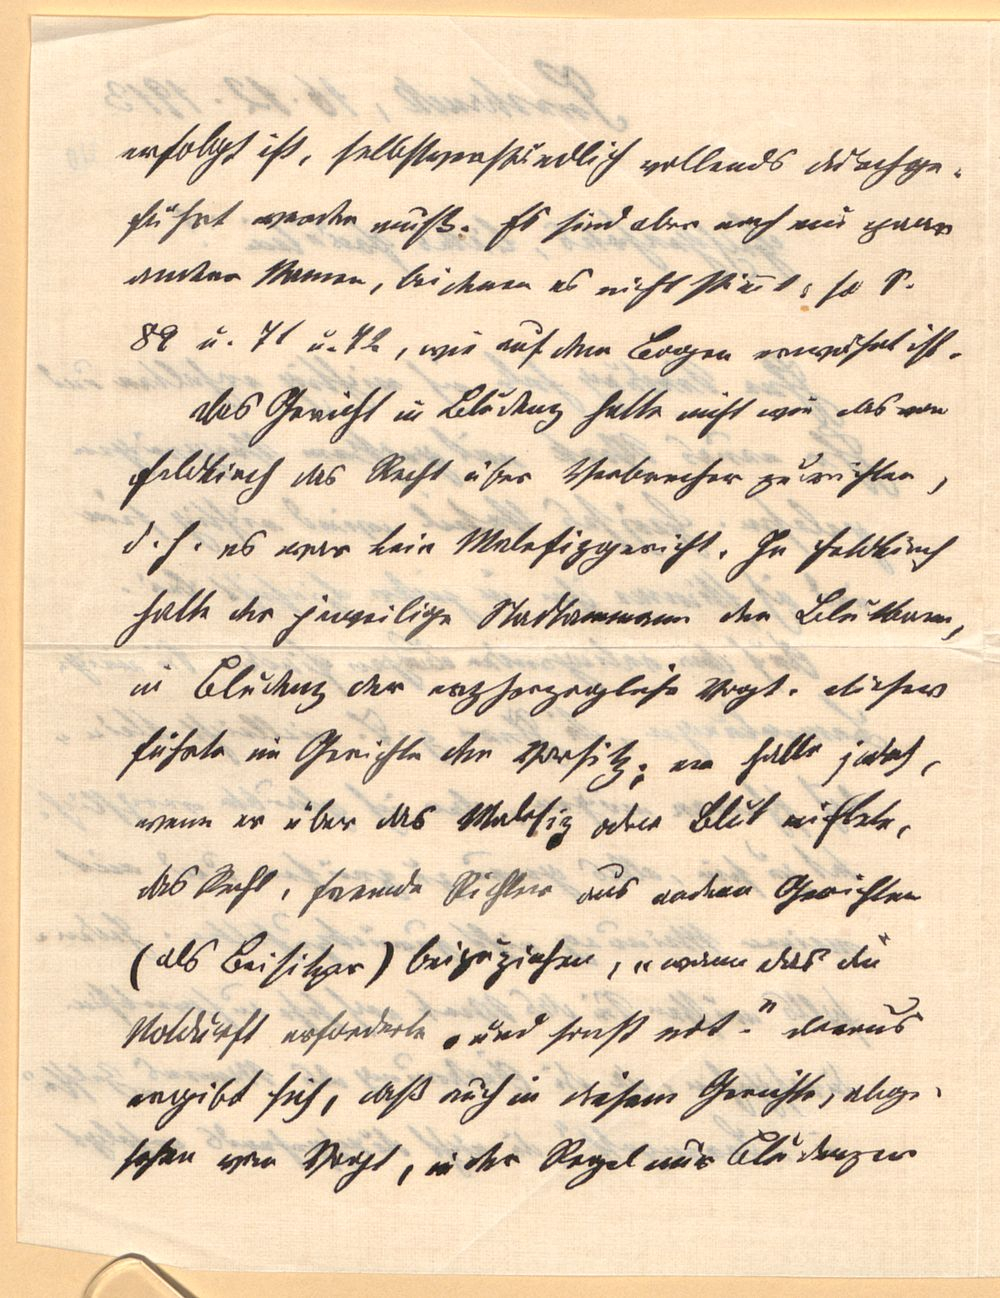 erfolgt ist, selbstverständlich vollends durchge-
führt werden muß. Es sind aber noch ein paar
andere Namen, bei denen es nicht stimmt; so S.
89 u. 71 u. 72, wie auf dem Bogen erwähnt ist.
Das Gericht in Bludenz hatte nicht wie das von
Feldkirch das Recht über Verbrecher zu richten,
d. h. es war kein Malefizgericht. In Feldkirch
hatte der jeweilige Stadtammann den Blutbann,
in Bludenz der erzherzogliche Vogt. Dieser
führte im Gerichte den Vorsitz; er hatte jedoch,
wenn er über das Malefiz oder Blut richtete,
das Recht, fremde Richter aus andern Gerichten
(als Beisitzer) beizuziehen, „wenn das die
Notdurft erforderte und sonst not." Daraus
ergibt sich, daß auch in diesem Gerichte, abge-
sehen vom Vogt, in der Regel nur Bludenzer